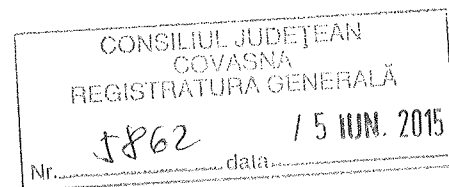 CONSILIUL JUDEŢEAN
COVASNA
REGISTRATURA GENERALĂ
Nr. 5862 data 15 IUN. 2015